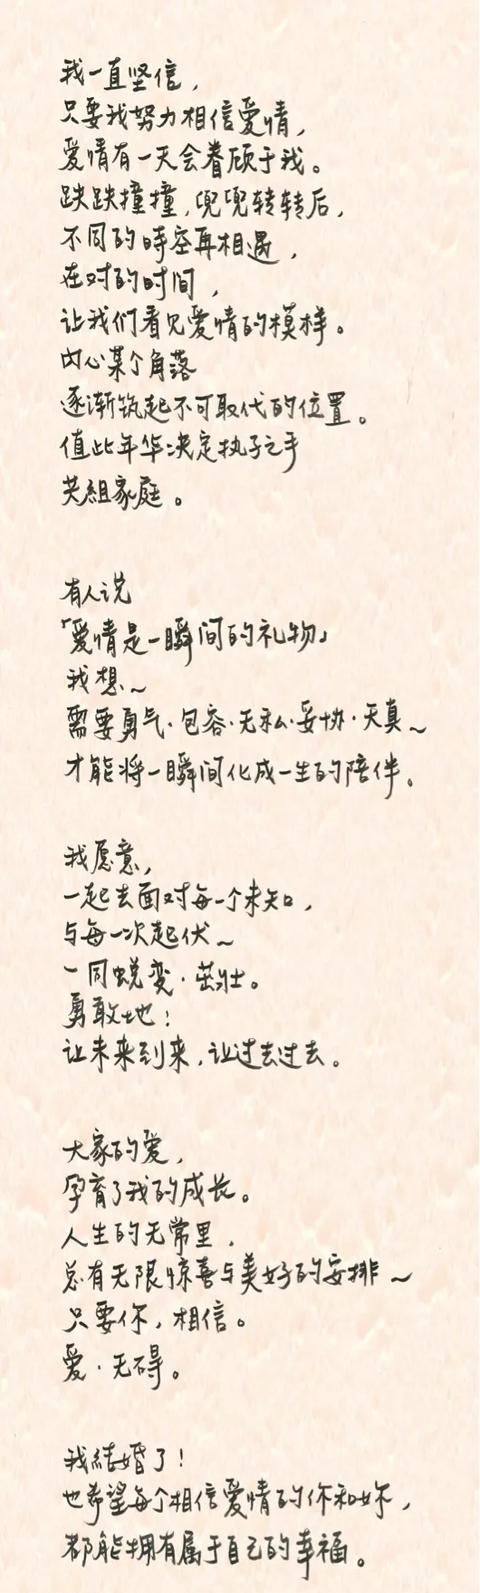 我一直坚信，
只要我努力相信爱情，
爱情有一天会眷顾于我。
跌跌撞撞，兜兜转转后，
不同的時空再相遇，
在对的时间，
让我们看见爱情的模样。
内心某个角落
逐渐筑起不可取代的位置。
值此年华决定执子之手
共組家庭。
有人说
「爱情是一瞬间的礼物」
我想～
需要勇气·包容·无私·妥协·天真～
才能将一瞬间化成一生的陪伴。
我愿意，
一起去面对每一个未知，
与每一次起伏～
一同蜕变·茁壮。
勇敢地！
让未来到来，让过去过去。
大家的爱，
孕育了我的成长。
人生的无常里，
总有无限惊喜与美好的安排～
只要你，相信。
爱·无碍。
我結婚了！
也希望每个相信爱情的你和妳，
都能拥有属于自己的幸福。